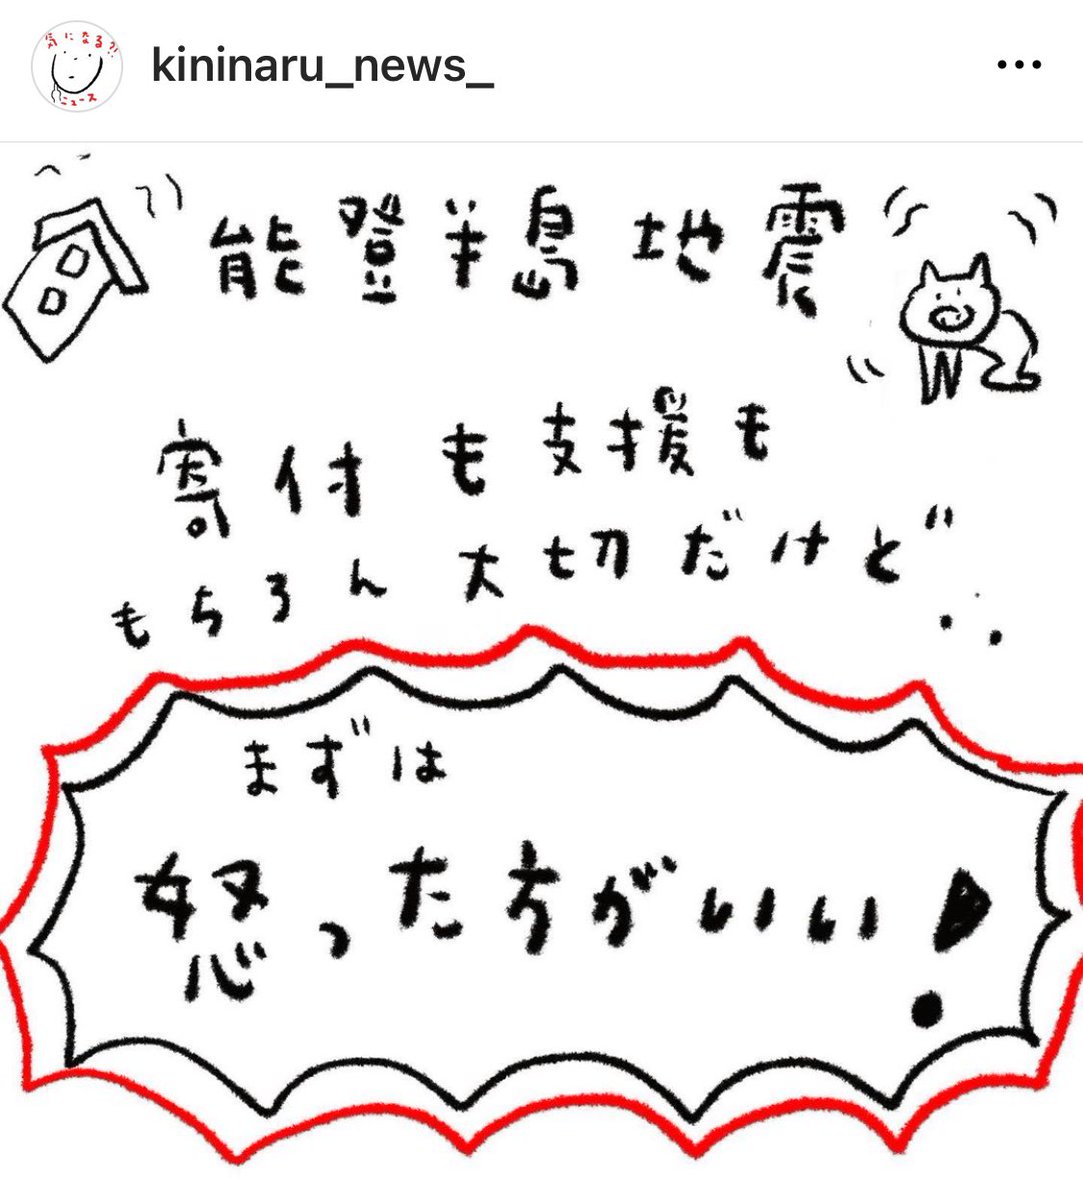 気になる?!
ニュース
kininaru_news_
能登半島地震
寄付も支援も
もちろん大切だけど..
まずは
怒った方がいい!